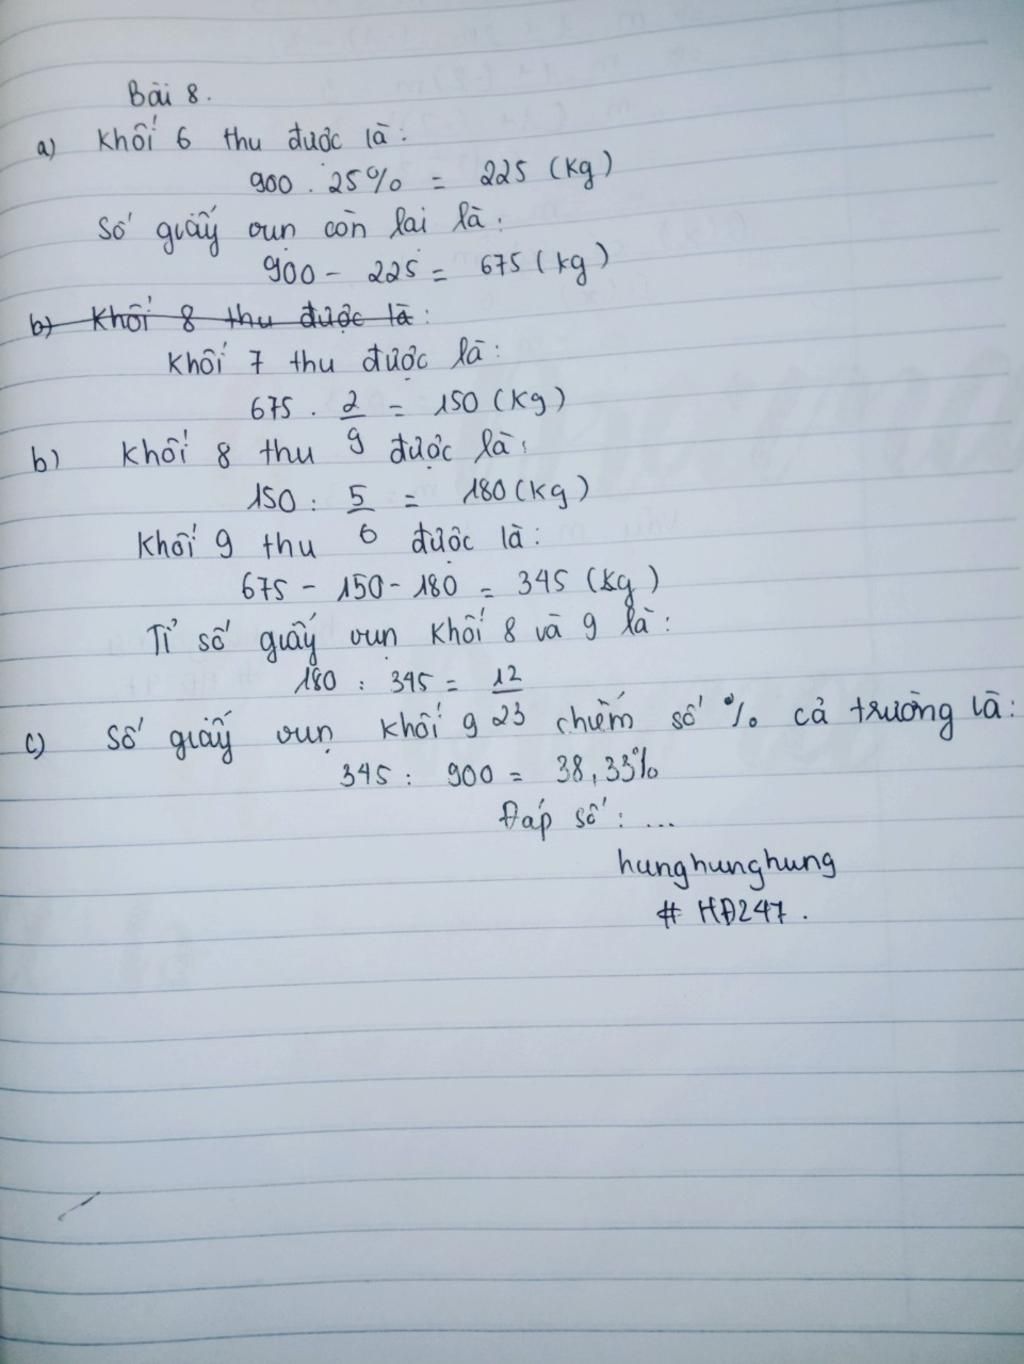 Bài 8.
a) Khối 6 thu được là:
900 . 25% = 225 (kg)
Số giấy vụn còn lại là:
900 - 225 = 675 (kg)
b) Khối 8 thu được là:
Khối 7 thu được là:
675 . 2/9 = 150 (kg)
b) Khối 8 thu được là:
150 : 5/6 = 180 (kg)
Khối 9 thu được là:
675 - 150 - 180 = 345 (kg)
Tỉ số giấy vụn khối 8 và 9 là:
180 : 345 = 12/23
c) Số giấy vụn khối 9 chiếm số % cả trường là:
345 : 900 = 38,33%
Đáp số: ...
hunghunghung
# HĐ247.